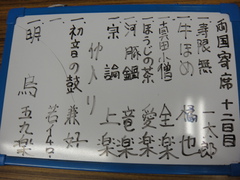 両国寄席 十二日
寿限無 一太郎
一 牛ほめ 橘也
一 真田小僧 全楽
一 ほうじの茶 愛楽
一 河豚鍋 竜楽
一 宗論 上楽
仲入り
一 初音の鼓 兼好
一 若イ4
一 明烏 五九楽